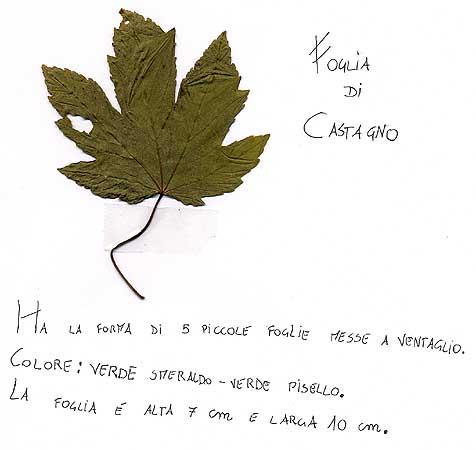 FOGLIA
DI
CASTAGNO
HA LA FORMA DI 5 PICCOLE FOGLIE MESSE A VENTAGLIO.
COLORE: VERDE SMERALDO - VERDE PISELLO.
LA FOGLIA É ALTA 7 cm E LARGA 10 cm.